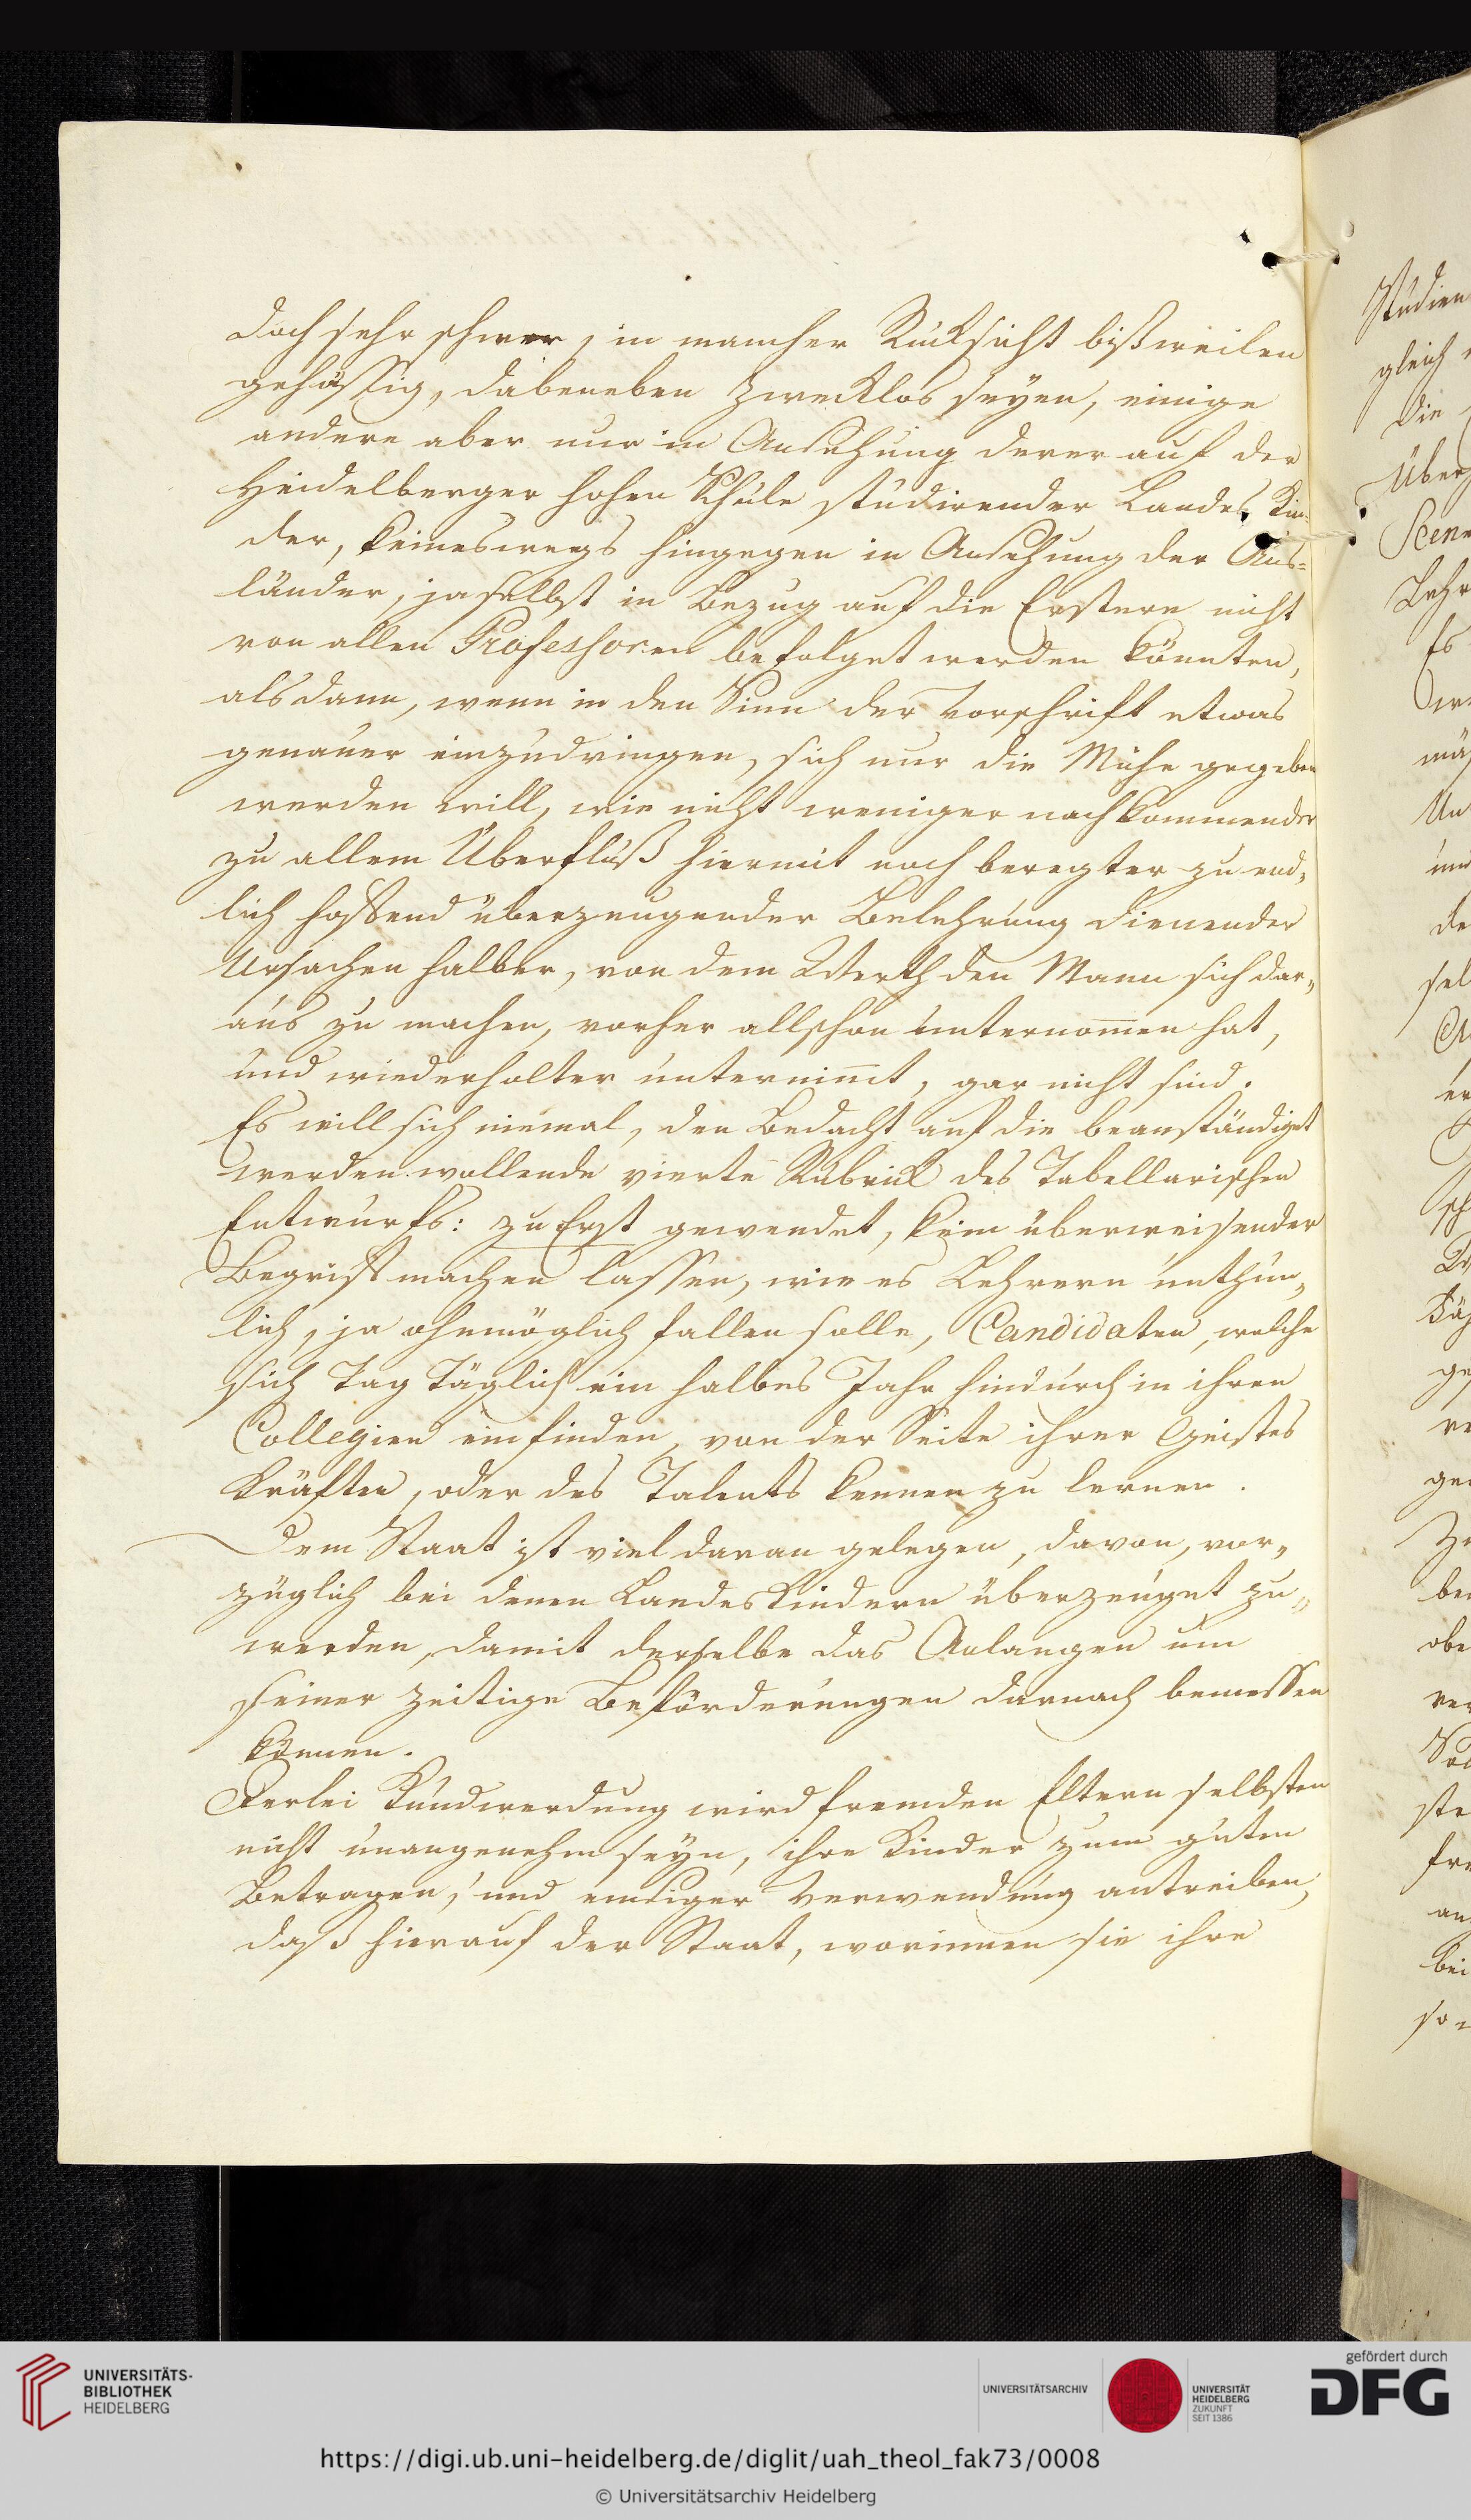 doch sehr schwer, in mancher Rücksicht bißweilen
gehässig, dabeneben zwecklos seyen, einige
andere aber nur in Ansehung derer auf der
Heidelberger hohen Schule studirender Landes Kin-
der, keineswegs hingegen in Ansehung der Aus-
länder, ja selbst in Bezug auf die Erstere nicht
von allen Professoren befolget werden könnten,
alsdann, wenn in den Sinn der Vorschrift etwas
genauer einzudringen, sich nur die Mühe gegeben
werden will, wie nicht weniger nachkommender
zu allem Überfluß hiermit noch beregter zu end-
lich hoffend überzeugender Belehrung dienender
Ursachen halber, von dem Werth den Mann sich dar-
aus zu machen, vorher allschon unternom̄en hat,
und wiederholter unternim̄t, gar nicht sind.
Es will sich niemal, den Bedacht auf die beanständiget
werden wollende vierte Rubrick des Tabellarischen
Entwurfs: zu Erst gewendet, kein überweisender
Begriff machen lassen, wie es Lehrern unthun-
lich, ja ohnmöglich fallen solle, Candidaten, welche
sich Tag Täglich ein halbes Jahr hindurch in ihren
Collegien einfinden, von der Seite ihrer Geistes
Kräften, oder des Talents kennen zu lernen.
Dem Staat ist viel daran gelegen, davon, vor-
züglich bei denen Landeskindern überzeuget zu
werden, damit derselbe das Anlangen um
seiner zeitige Beförderungen darnach bemessen
können.
Derlei Kundwerdung wird fremden Eltern selbsten
nicht unangenehm seyn, ihre Kinder zum guten
Betragen, und emsiger Verwendung antreiben,
daß hierauf der Staat, worinnen sie ihre
Studien
gleich
die
Über
Lehr
Es
UNIVERSITÄTS-
BIBLIOTHEK
HEIDELBERG
UNIVERSITÄTSARCHIV
UNIVERSITÄT
HEIDELBERG
ZUKUNFT
SEIT 1386
gefördert durch
DFG
https://digi.ub.uni-heidelberg.de/diglit/uah_theol_fak73/0008
© Universitätsarchiv Heidelberg